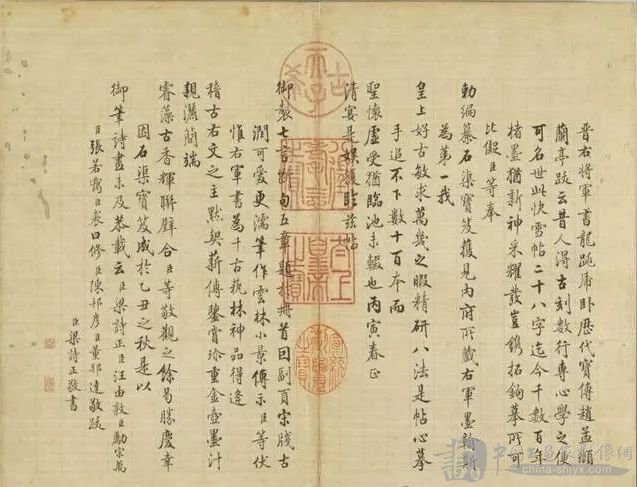 晉右將軍書龍跳虎臥歷代寶傳趙孟頫
蘭亭跋云昔人得古刻數行專心學之便
可名世此快雪帖二十八字迄今千數百年
楮墨猶新神采耀發豈鐫拓鉤摹所可
比儗臣等奉
勅編纂石渠寶笈獲見內府所藏右軍墨蹟斯
為第一我
皇上好古敏求萬幾之暇精研八法是帖心摹
手追不下數十百本而
聖懷虛受猶臨池未輟也丙寅春正
清宴是娛復臨茲帖
御製七言斷句五章題於冊首因副頁宋牋古
潤可愛更濡筆作雲林小景傳示臣等伏
惟右軍書為千古執林神品得逢
稽古右文之主默契薪傳鑒賞珍重金壺墨汁
親灑簡端
睿藻古香輝聯璧合臣等敬觀之餘曷勝慶幸
因石渠寶笈成於乙丑之秋是以
御筆詩畫未及恭載云臣梁詩正臣汪由敦臣勵宗萬
臣張若靄臣裘曰修臣陳邦彥臣董邦達敬跋
臣梁詩正敬書
古希天子
太上皇帝之寶
china-shjyx.com